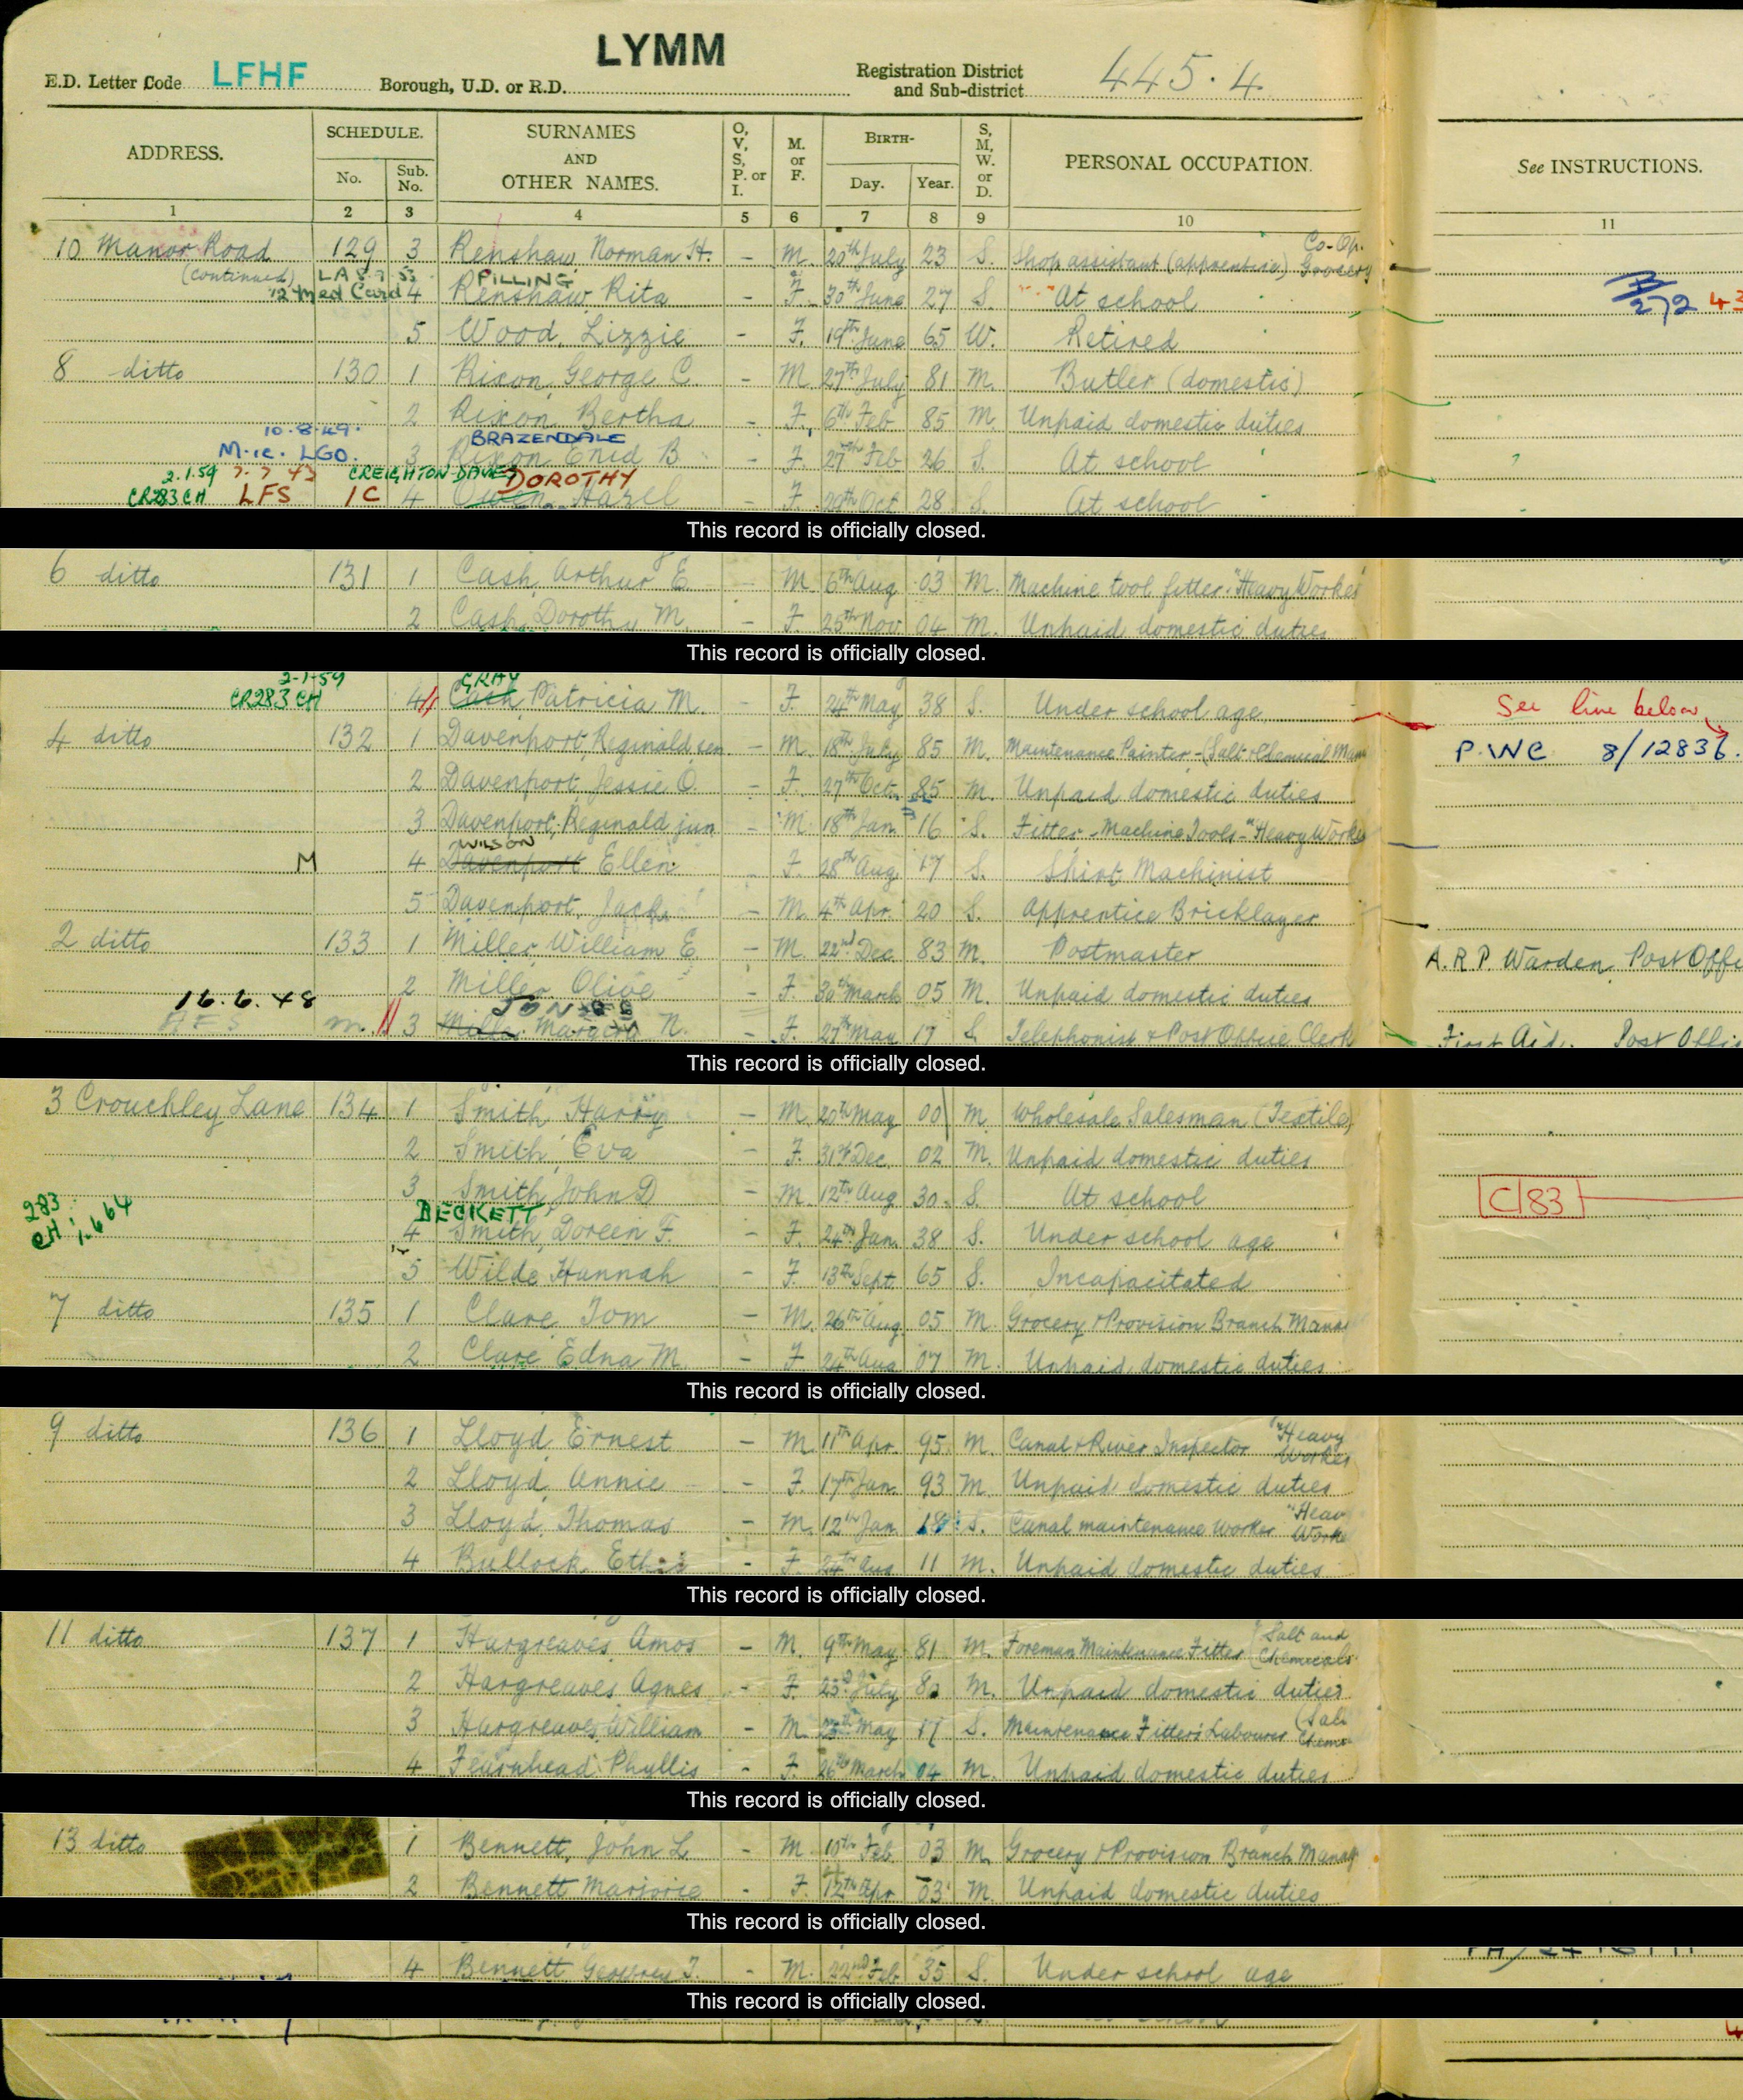 LYMM
E.D. Letter Code LFHF Borough, U.D. or R.D. Registration District and Sub-district 445.4
ADDRESS. SCHEDULE. No. Sub. No. SURNAMES AND OTHER NAMES. O, V, S, P. or I. M. or F. BIRTH- Day. Year. S, M, W. or D. PERSONAL OCCUPATION. See INSTRUCTIONS.
1 2 3 4 5 6 7 8 9 10 11
10 Manor Road 129 3 Renshaw, Norman H. - M. 20th July 23 S. Shop assistant (apprentice) Co-Op. Grocery
(continued) LA 8.7.53 PILLING
Med Card 4 Renshaw Rita F. 30th June 27 S. At school 272 43
5 Wood, Lizzie - F. 19th June 65 W. Retired
8 ditto 130 1 Rixon, George C - M 27th July 81 M. Butler (domestic)
2 Rixon Bertha - F. 6th Feb 85 M. Unpaid domestic duties
10.8.49. BRAZENDALE
M.ic. LGO. 3 Rixon Enid B - F. 27th Feb 26 S. At school
2.1.59 7.7.43 CREIGHTON DAVEY DOROTHY
CR283 CH LFS 1C 4 Owen, Hazel - F. 28 S. At school
This record is officially closed.
6 ditto 131 1 Cash, Arthur E. - M 6th Aug 03 M. Machine tool fitter. "Heavy Worker"
2 Cash, Dorothy M. - F. 25th Nov 04 M. Unpaid domestic duties
This record is officially closed.
2-1-59 GRAY
CR283 CH 4 Cash Patricia M. - F. 24th May 38 S. Under school age See line below
4 ditto 132 1 Davenport, Reginald sen. - M. 18th July 85 M. Maintenance Painter - (Salt & Chemical Man P.W.C 8/12836.
2 Davenport, Jessie O. - F. 27th Oct. 85 M. Unpaid domestic duties
3 Davenport, Reginald jun - M. 18th Jan 16 S. Fitter - Machine Tools - "Heavy Worke
WILSON
M 4 Davenport Ellen F. 28th Aug 17 S. Shirt Machinist
5 Davenport, Jack - M. 4th Apr. 20 S. Apprentice Bricklayer
2 ditto 133 1 Miller William E - M. 22nd Dec. 83 M. Postmaster A.R.P. Warden, Post Offi
2 Miller Olive - F. 30th March 05 M. Unpaid domestic duties
16.6.48 JONES
m. 3 Miller Margery N. - F. 27th May 17 S. Telephonist & Post Office Clerk First Aid. Post Offi
This record is officially closed.
3 Crouchley Lane 134 1 Smith, Harry - M. 20th May 00 M. Wholesale Salesman (Textile)
2 Smith, Eva - F. 31st Dec. 02 M. Unpaid domestic duties
283 3 Smith, John D - M. 12th Aug 30 S. At school C183
BECKETT
CH 1.6.64 4 Smith, Doreen F. - F. 24th Jan. 38 S. Under school age
5 Wilde, Hannah - F. 13th Sept. 65 S. Incapacitated
7 ditto 135 1 Clare Tom - M. 26th Aug. 05 M. Grocery & Provision Branch Mana
2 Clare Edna M. - F 24th Aug 07 M. Unpaid domestic duties
This record is officially closed.
9 ditto 136 1 Lloyd, Ernest - M. 11th Apr. 95 M. Canal & River Inspector "Heavy Worker
2 Lloyd, Annie - F. 17th Jan. 93 M. Unpaid domestic duties
3 Lloyd, Thomas - M. 12th Jan 18 S. Canal maintenance worker "Heav Worke
4 Bullock, - F. 24th Aug 11 M. Unpaid domestic duties
This record is officially closed.
11 ditto 137 1 Hargreaves, Amos - M. 9th May 81 M. Foreman Maintenance Fitter (Salt and Chemicals
2 Hargreaves Agnes - F. 23rd July M. Unpaid domestic duties
3 Hargreaves, William - M May 17 S. Maintenance Fitter's Labourer (Salt Chems
4 Fearnhead Phyllis - F. 26th March 04 M. Unpaid domestic duties
This record is officially closed.
13 ditto 1 Bennett, John L - M. 10th Feb 03 M. Grocery & Provision Branch Manag
2 Bennett Marjorie - F. 12th Apr 03 M. Unpaid domestic duties
This record is officially closed.
4 Bennett Geoffrey J. - M. 22nd Feb 35 S. Under school age
This record is officially closed.